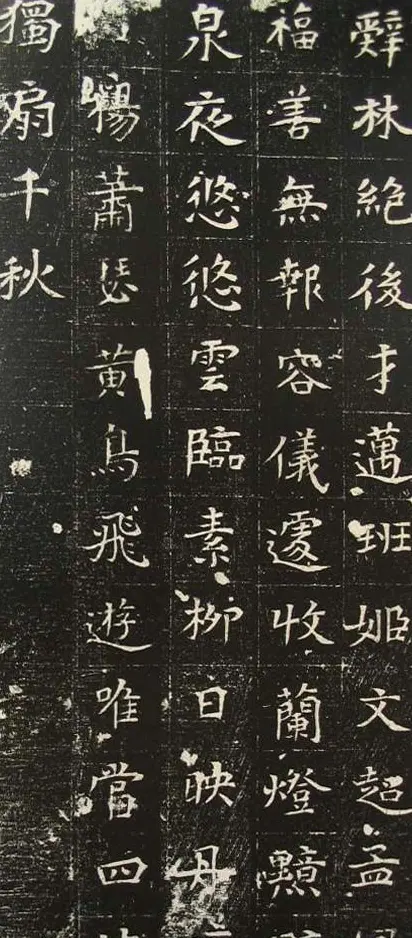 辭林絶後才邁班姬文超孟
福善無報容儀遽收蘭燈
泉夜悠悠雲臨素柳日映丹
楊蕭瑟黃鳥飛遊唯當四
獨扇千秋